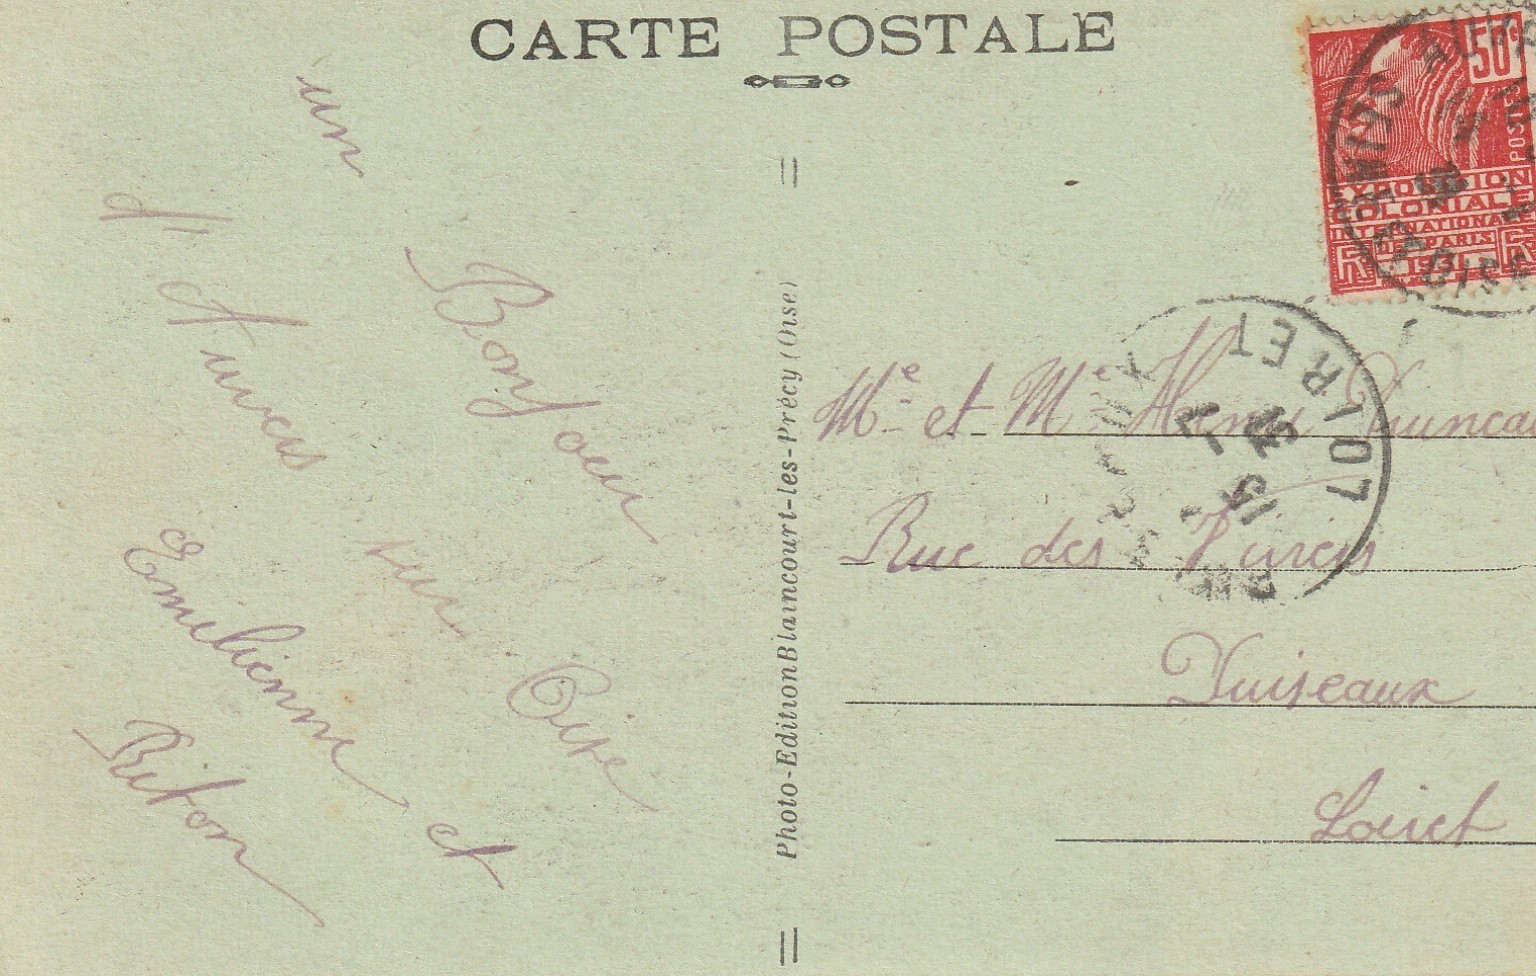 CARTE POSTALE
un
Bonjour
d'Auvers
sur
Oise
Emilienne et
Riton
Photo-Edition Blaincourt-les-Précy (Oise)
50c
POSTES
EXPOSITION
COLONIALE
INTERNATIONALE
PARIS
1931
RF
LOIRET
Me et Me Henri
Rue des
Puiseaux
Loiret